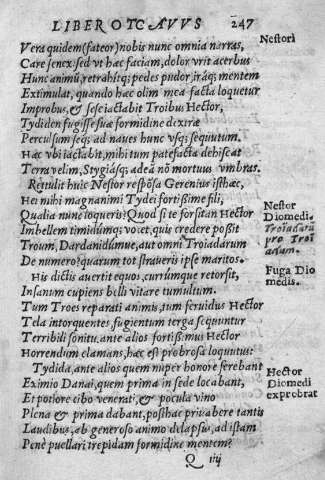 LIBER OTCAVVS 247
Vera quidem (fateor) nobis nunc omnia narras,
Nestori
Care senex: sed vt hac faciam, dolor vrit acerbus
Hunc animũ, retrahitq; pedes pudor, iráq; mentem
Extimulat, quando hæc olim mea facta loquetur
Improbus, & sese iactabit Troibus Hector,
Tydiden fugisse suæ formidine dextræ
Perculsum seq; ad naues hunc vsq; sequutum.
Hæc vbi iactabit, mihi tum patefacta dehiscat
Terra velim, Stygiásq; adeã nõ mortuus vmbras.
Retulit huic Nestor respõsa Gerenius isthæc,
Hei nihi magnanimi Tydei fortißime fili,
Qualia nunc loqueris? Quod si te forsitan Hector
Nestor
Diomedi.
Imbellem timidúmq; vocet, quis credere poßit
Troiadarũ
pro Troi
adam.
Troum, Dardanidumue, aut omni Troiadarum
De numero? quarum tot straueris ipse maritos.
His dictis auertit equos, currúmque retorsit,
Fuga Dio
medis.
Insanum cupiens belli vitare tumultum.
Tum Troes reparati animis, tum feruidus Hector
Tela intorquentes fugientum terga sequuntur
Terribili sonitu, ante alios fortißimus Hector
Horrendum clamans, hæc est probrosa loquutus:
Tydida, ante alios quem nuper honore ferebant
Hector
Diomedi
exprobrat
Eximio Danai, quem prima in sede locabant,
Et potiore cibo venerati, & pocula vino
Plena & prima dabant, posthac priuabere tantis
Laudibus, ab generoso animo delapsus, ad istam
Penè puellari trepidam formidine mentem?
Q iiij